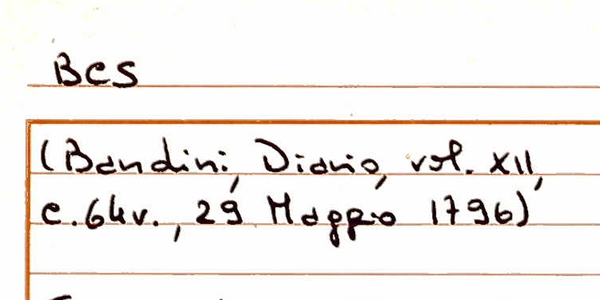 BCS
(Bandini, Diario, vol. XII,
c. 64v., 29 Maggio 1796)